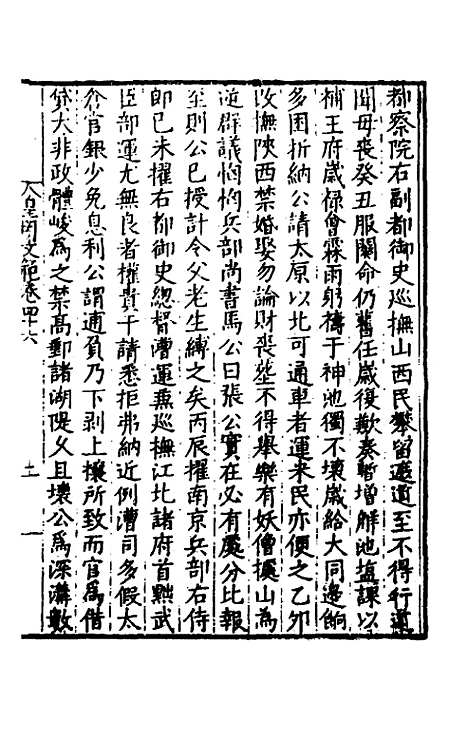 都察院右副都御史巡撫山西民攀留遮道至不得行道
聞母喪癸丑服闋命仍舊任歲復歉奏暫增解池塩課以
補王府歲禄會霖雨躬禱于神池獨不壞歲給大同邊餉
多困折納公請太原以北可通車者運米民亦便之乙卯
改撫陝西禁婚娶勿論財喪塟不得舉樂有妖僧據山為
逆群議恟恟兵部尚書馬公曰張公實在必有處分比報
至則公已授計令父老生縛之矣丙辰擢南京兵部右侍
郎已未擢右都御史總督漕運兼巡撫江北諸府首黜武
臣部運尤無良者權貴干請悉拒弗納近例漕司多假太
倉官銀少免息利公謂逋負乃下剥上攘所致而官為借
貸大非政體峻為之禁高郵諸湖隄乆且壞公為深溝數
皇明文範卷四十六
十一